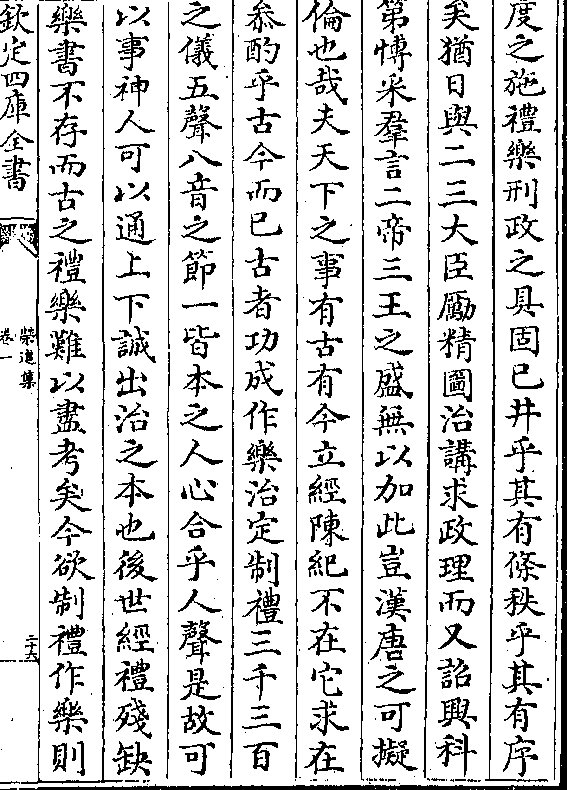 度之施禮樂刑政之具固已井乎其有條秩乎其有序
矣猶日與二三大臣勵精圖治講求政理而又詔興科
第博采羣言二帝三王之盛無以加此豈漢唐之可擬
倫也哉夫天下之事有古有今立經陳紀不在它求在
叅酌乎古今而已古者功成作樂治定制禮三千三百
之儀五聲八音之節一皆本之人心合乎人聲是故可
以事神人可以通上下誠出治之本也後世經禮殘缺
樂書不存而古之禮樂難以盡考矣今欲制禮作樂則
欽定四庫全書
卷一
二十六